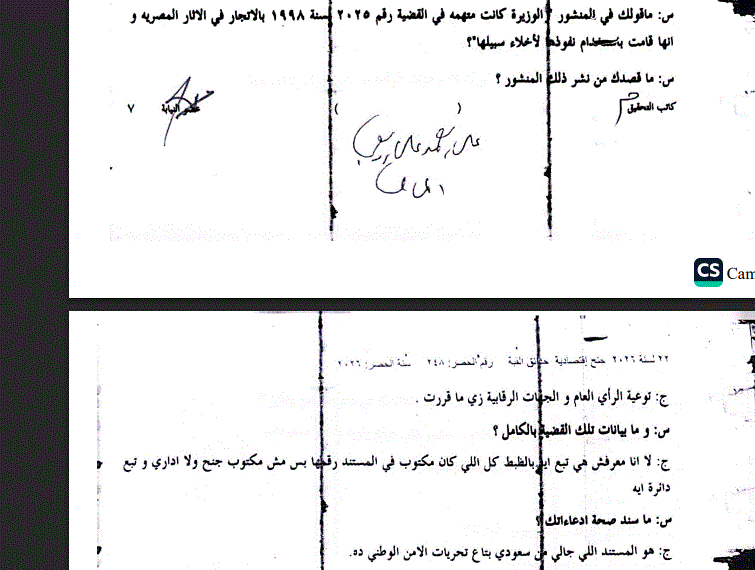 س: ماقولك في المنشور " الوزيرة كانت متهمه في القضية رقم ٢٠٢٥ لسنة ١٩٩٨ بالاتجار في الاثار المصريه و
انها قامت باستخدام نفوذها لأخلاء سبيلها"؟
س: ما قصدك من نشر ذلك المنشور ؟
كاتب التحقيق ( ) النيابة ٧
CS Cam
٢٢ لسنة ٢٠٢٦ جنح إقتصادية حدائق القبة رقم الحصر: ٢٤٨ سنة الحصر: ٢٠٢٦
ج: توعية الرأي العام و الجهات الرقابية زي ما قررت .
س: و ما بيانات تلك القضية بالكامل ؟
ج: لا انا معرفش هي تبع ايه بالظبط كل اللي كان مكتوب في المستند رقمها بس مش مكتوب جنح ولا اداري و تبع
دائرة ايه
س: ما سند صحة ادعاءاتك ؟
ج: هو المستند اللي جالي من سعودي بتاع تحريات الامن الوطني ده.